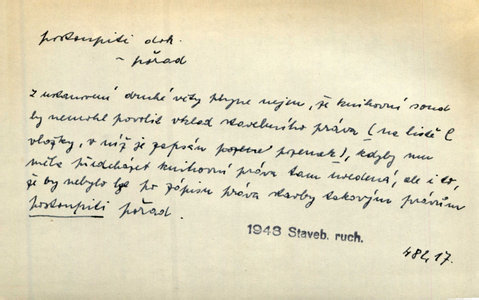 postoupiti dok.
– pořad
Z ustanovení druhé věty plyne nejen, že knihovní soud
by nemohl povoliti vklad stavebního práva (na listě C
vložky, v níž je zapsán pozemek), kdyby mu
měla předcházet knihovní práva tam uvedená, ale i to,
že by nebylo lze po zápisu práva stavby takovým právům
postoupiti pořad.
1948 Staveb. ruch.
484, 17.